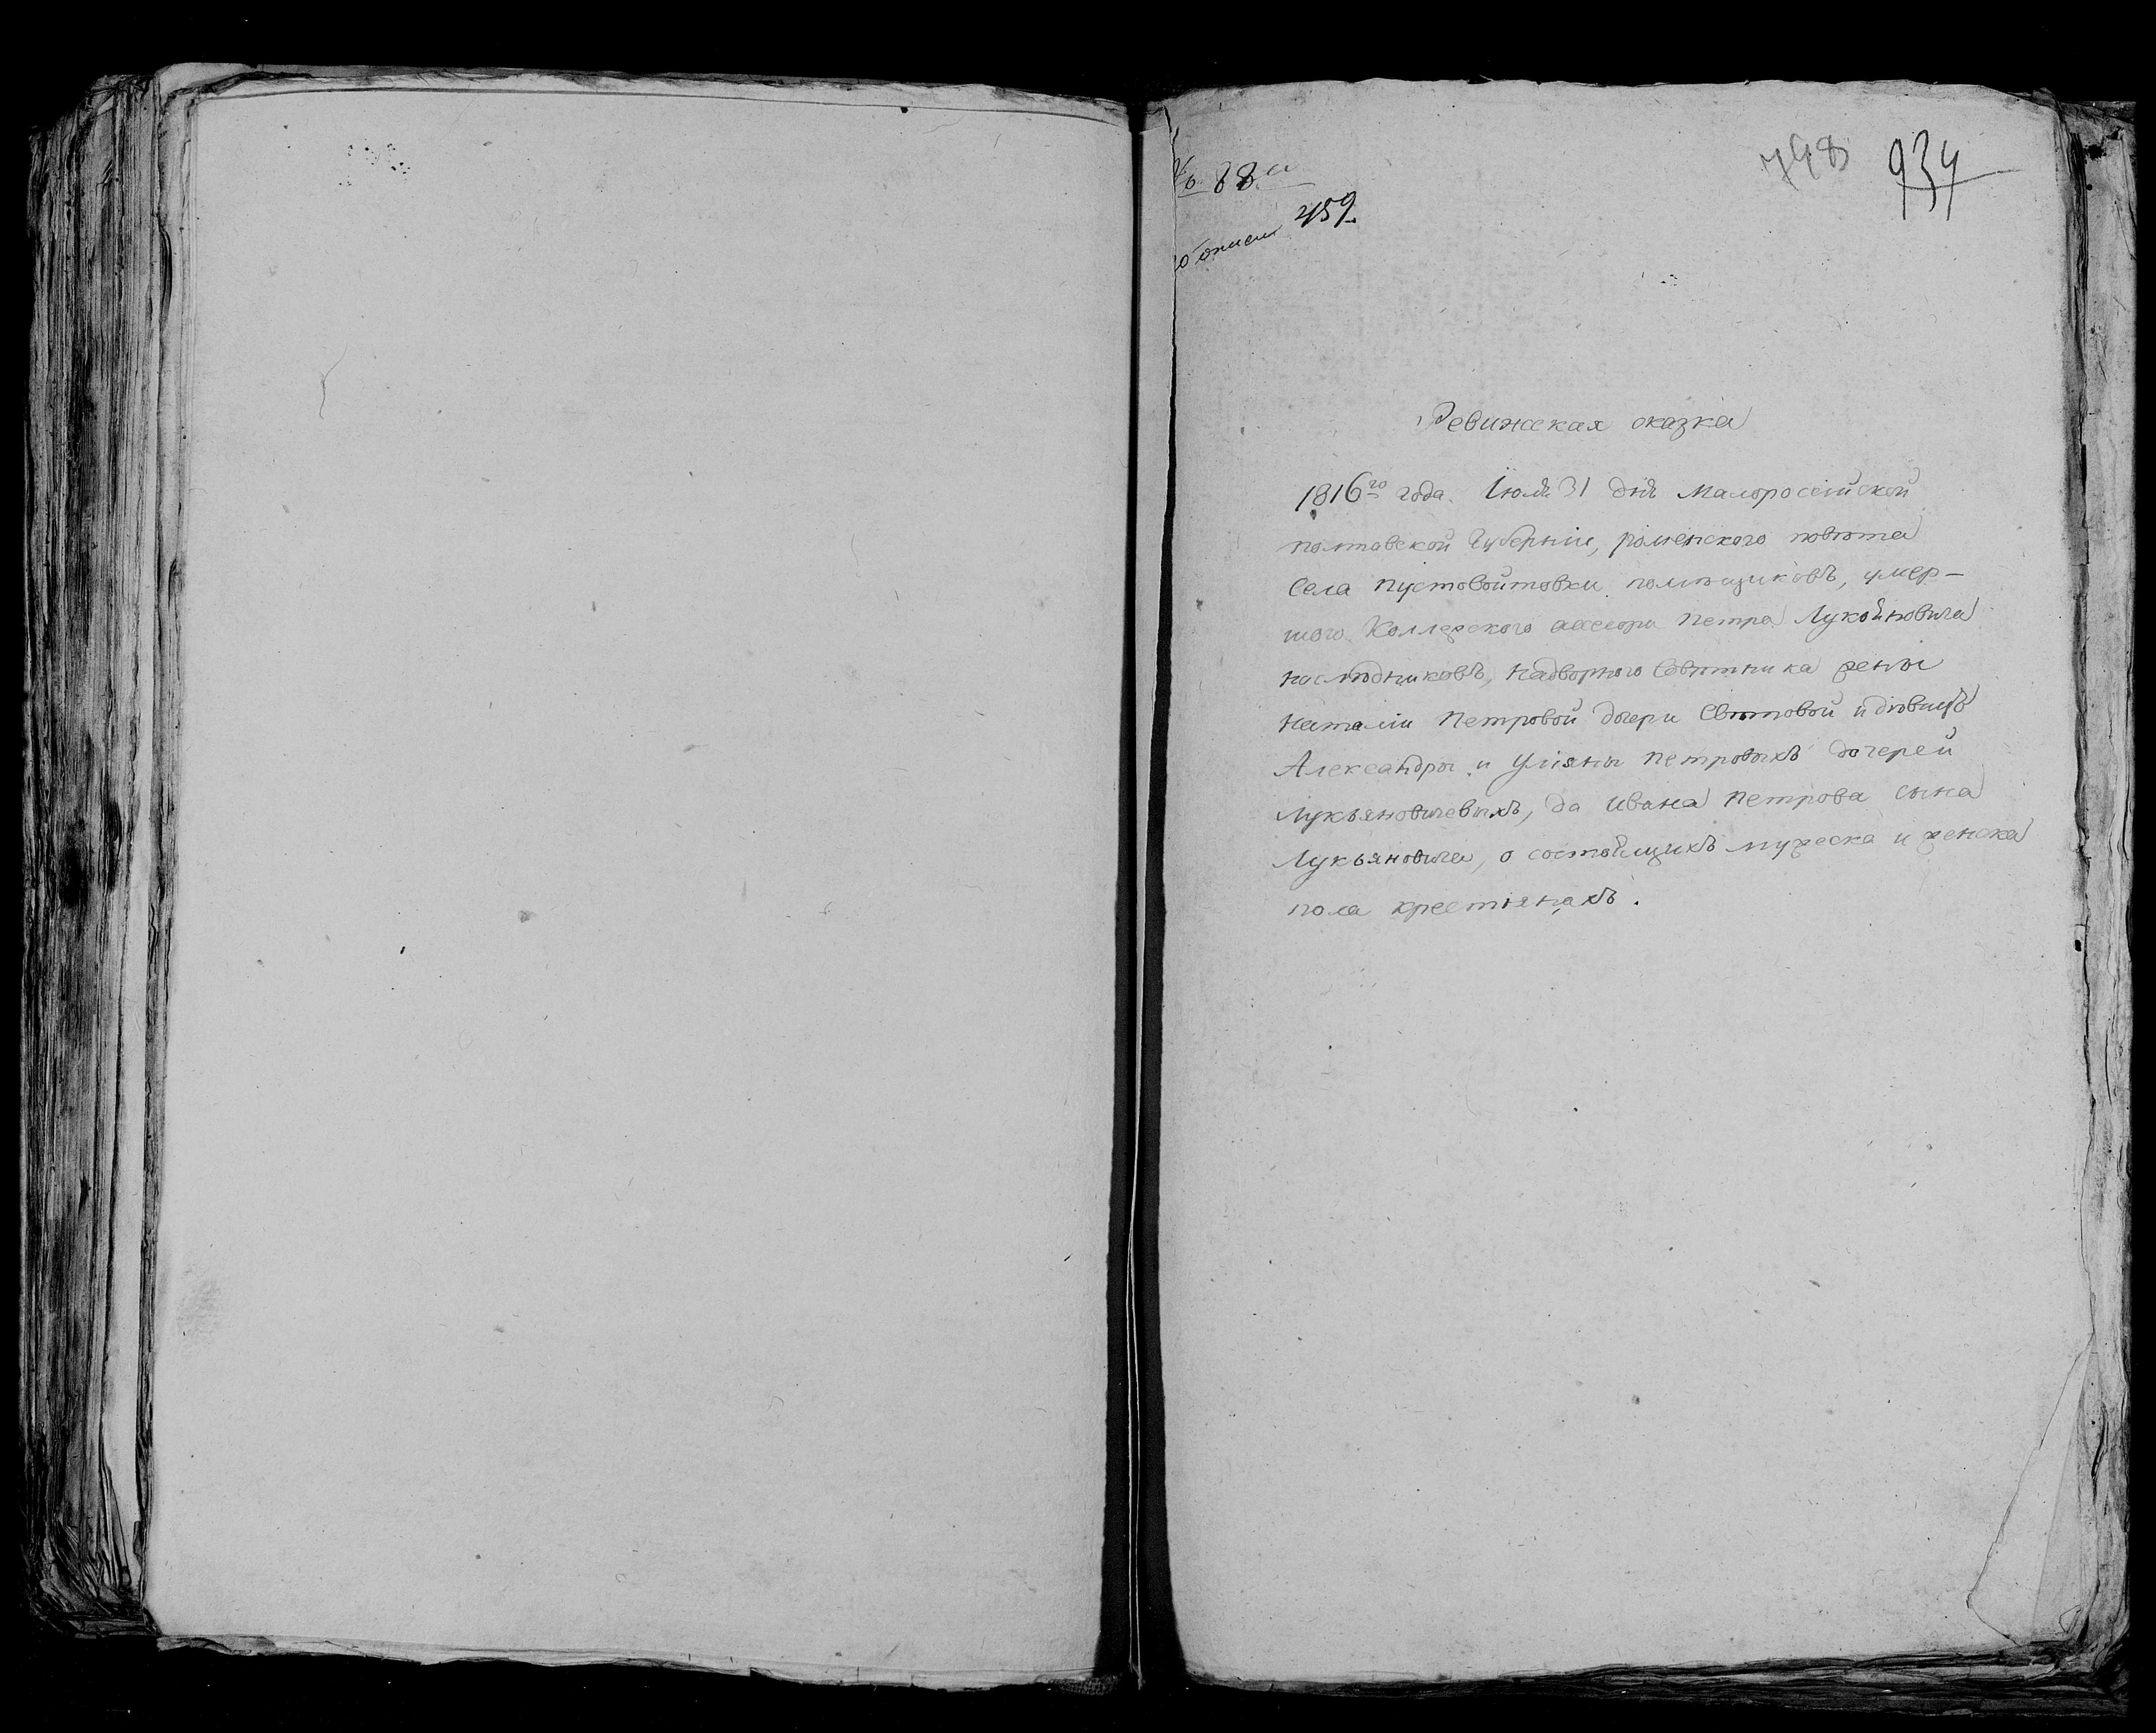 № 88й
798 934
по описи 459.
Ревижская сказка
1816го года. Iюля 31 дня Малоросейской
полтавской Губернiи, роменского повѣта
Села пустовойтовки помѣщиковъ, умер–
шого Коллежского асесора Петра Лукьяновича
наслѣдниковъ, надворного Совѣтника жены
наталiи Петровой дочери Свѣтовой и дѣвицъ
Александры и Улiяны Петровыхъ дочерей
Лукьяновичевыхъ, да ивана Петрова сына
Лукьяновича, о состоящихъ мужеска и женска
пола крестьянахъ.